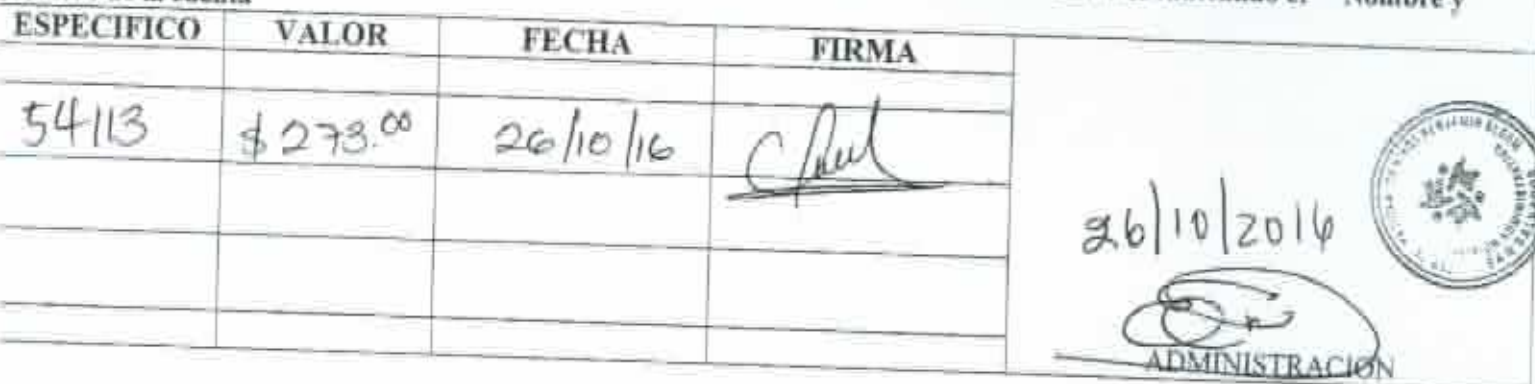 Nombre y
ESPECIFICO VALOR FECHA FIRMA
54113 $273.00 26/10/16
26/10/2016
BENJAMIN BLOOM
ADMINISTRACION